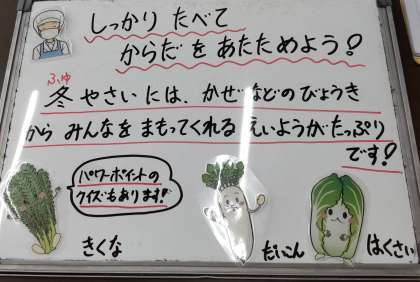 しっかり たべて
からだを あたためよう!
ふゆ
冬 やさいには、かぜなどのびょうき
から みんなを まもってくれる えいようがたっぷり
です!
パワーポイントの
クイズもあります!
きくな
だいこん
はくさい